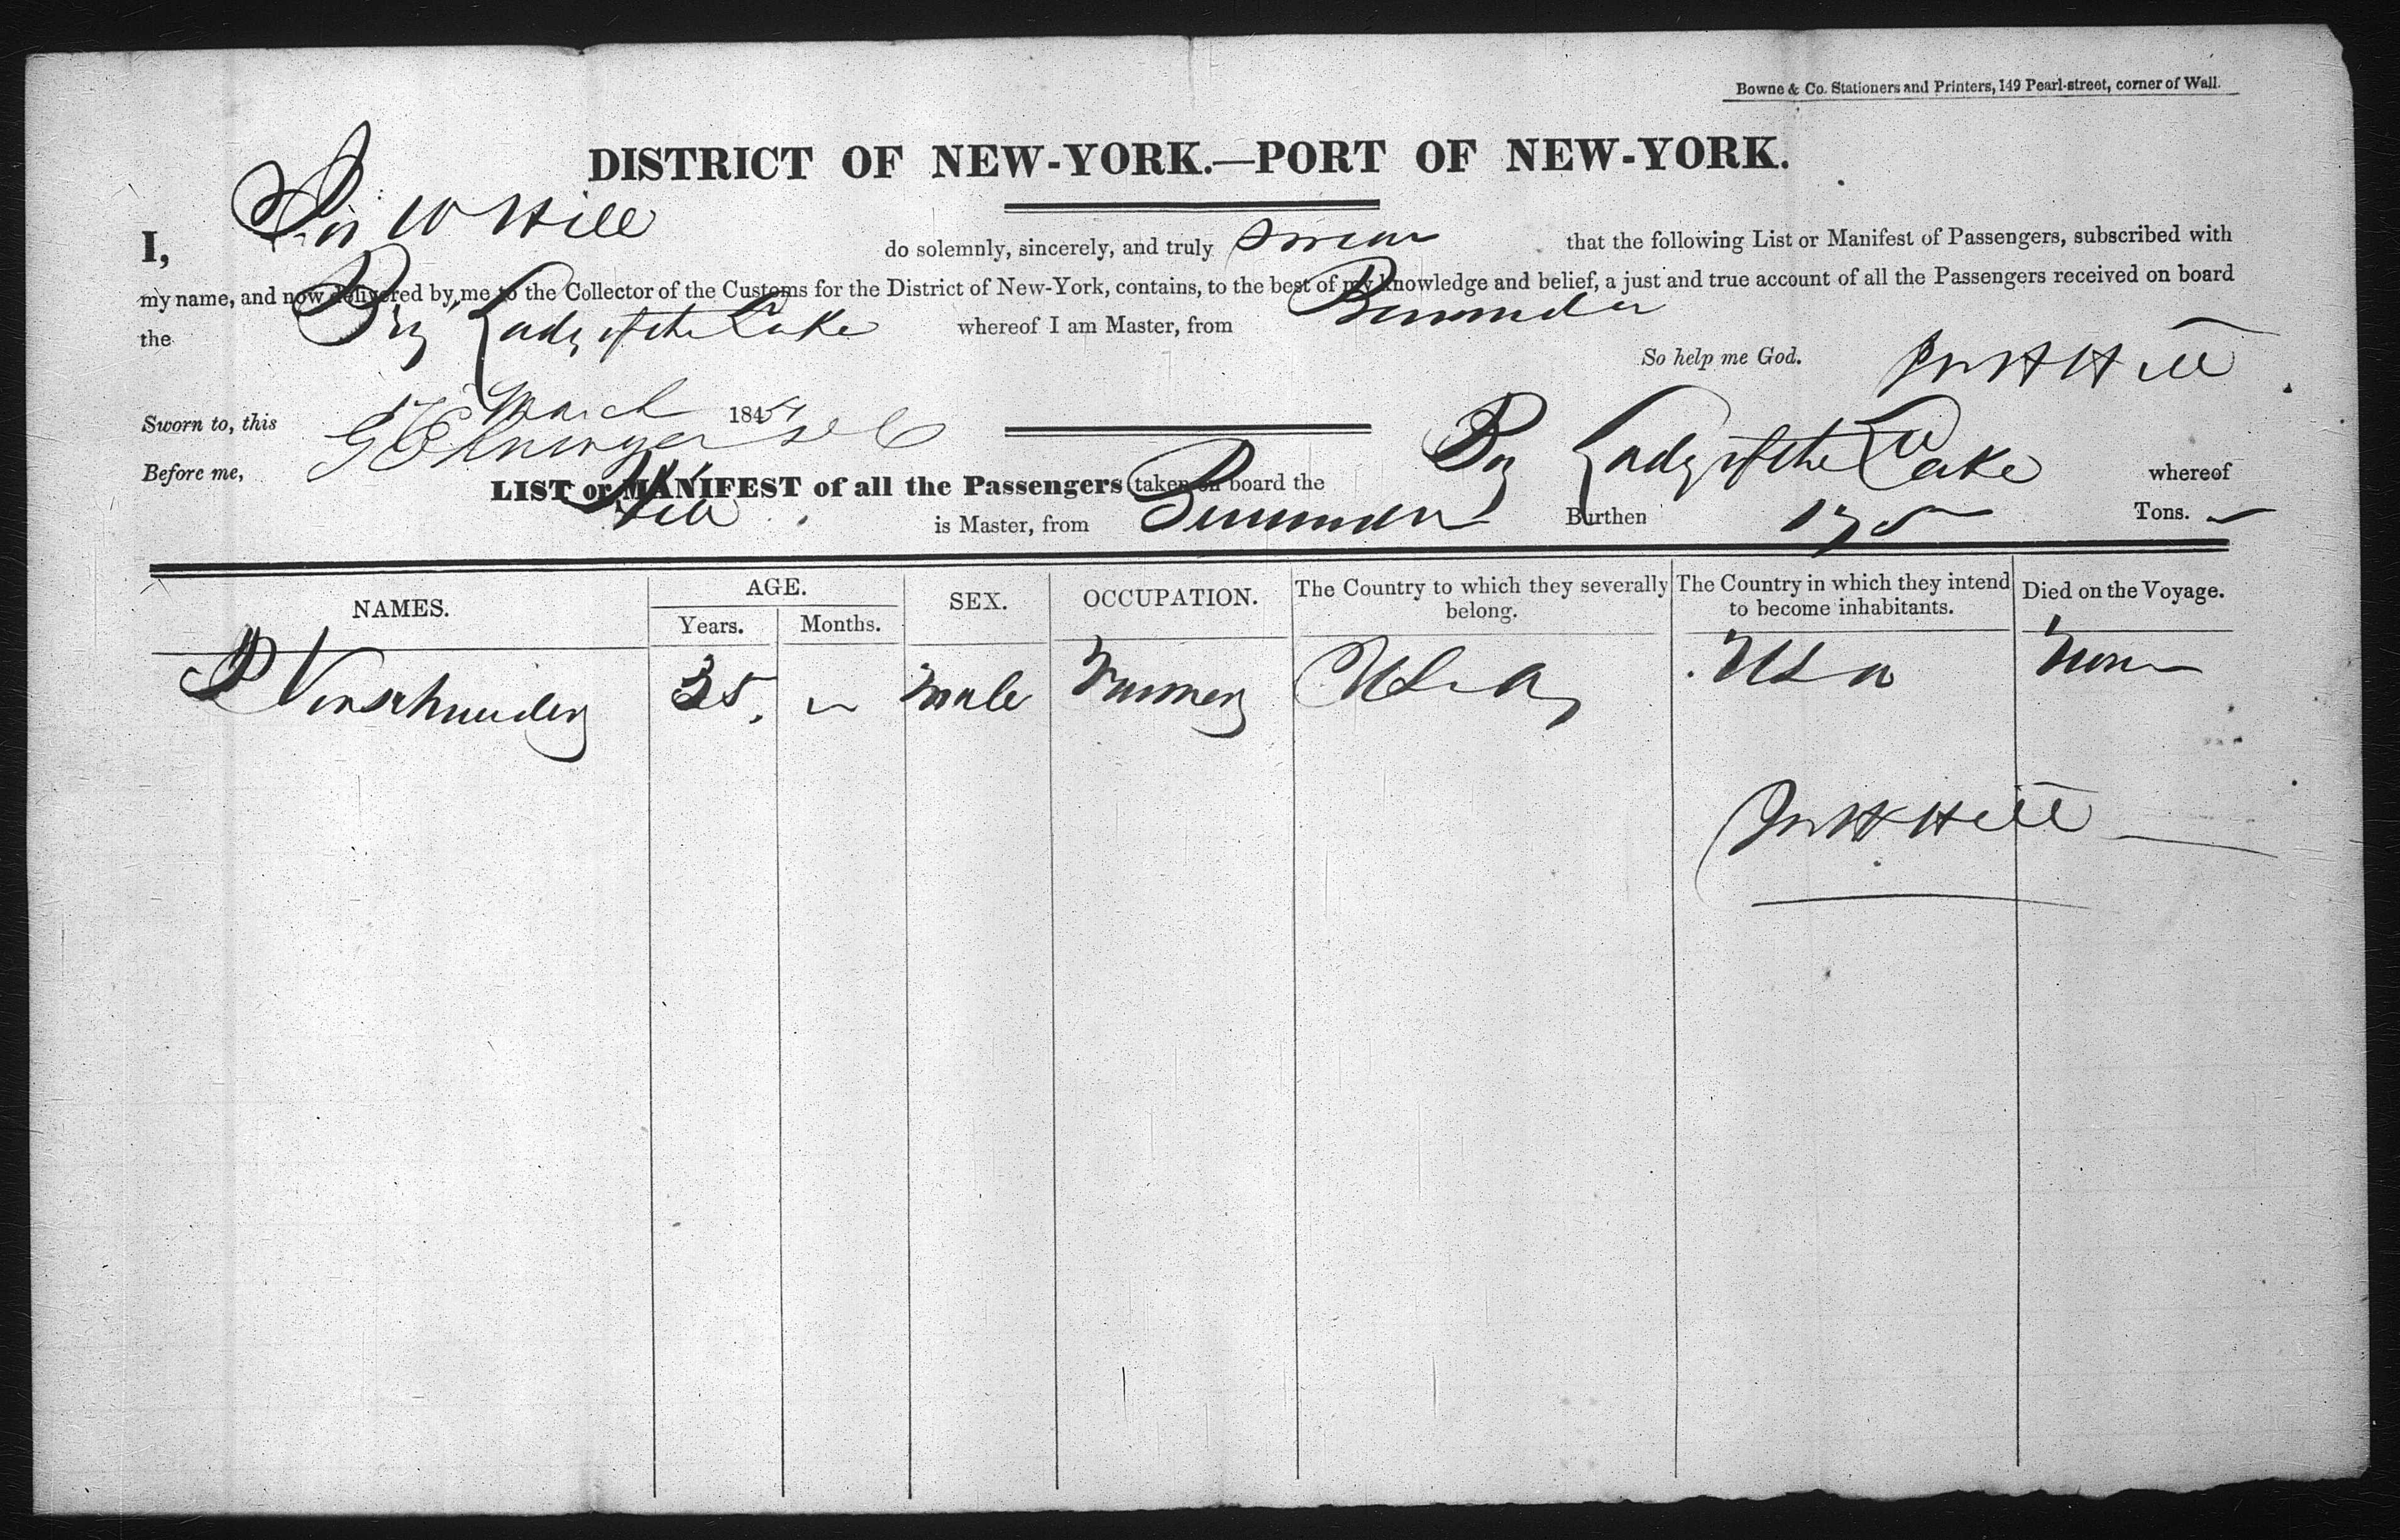 Bowne & Co. Stationers and Printers, 149 Pearl-street, corner of Wall.
DISTRICT OF NEW-YORK.—PORT OF NEW-YORK.
I, W Hill do solemnly, sincerely, and truly swear that the following List or Manifest of Passengers, subscribed with
my name, and now delivered by me to the Collector of the Customs for the District of New-York, contains, to the best of my knowledge and belief, a just and true account of all the Passengers received on board
the Brig Lady of the Lake whereof I am Master, from Bermuda
So help me God. Hill
Sworn to, this 17 March 184
Before me,
LIST or MANIFEST of all the Passengers taken on board the Brig Lady of the Lake whereof
Hill is Master, from Bermuda Burthen 175 Tons.
NAMES. AGE. SEX. OCCUPATION. The Country to which they severally belong. The Country in which they intend to become inhabitants. Died on the Voyage.
Years. Months.
35 male U S A U S A None
Hill